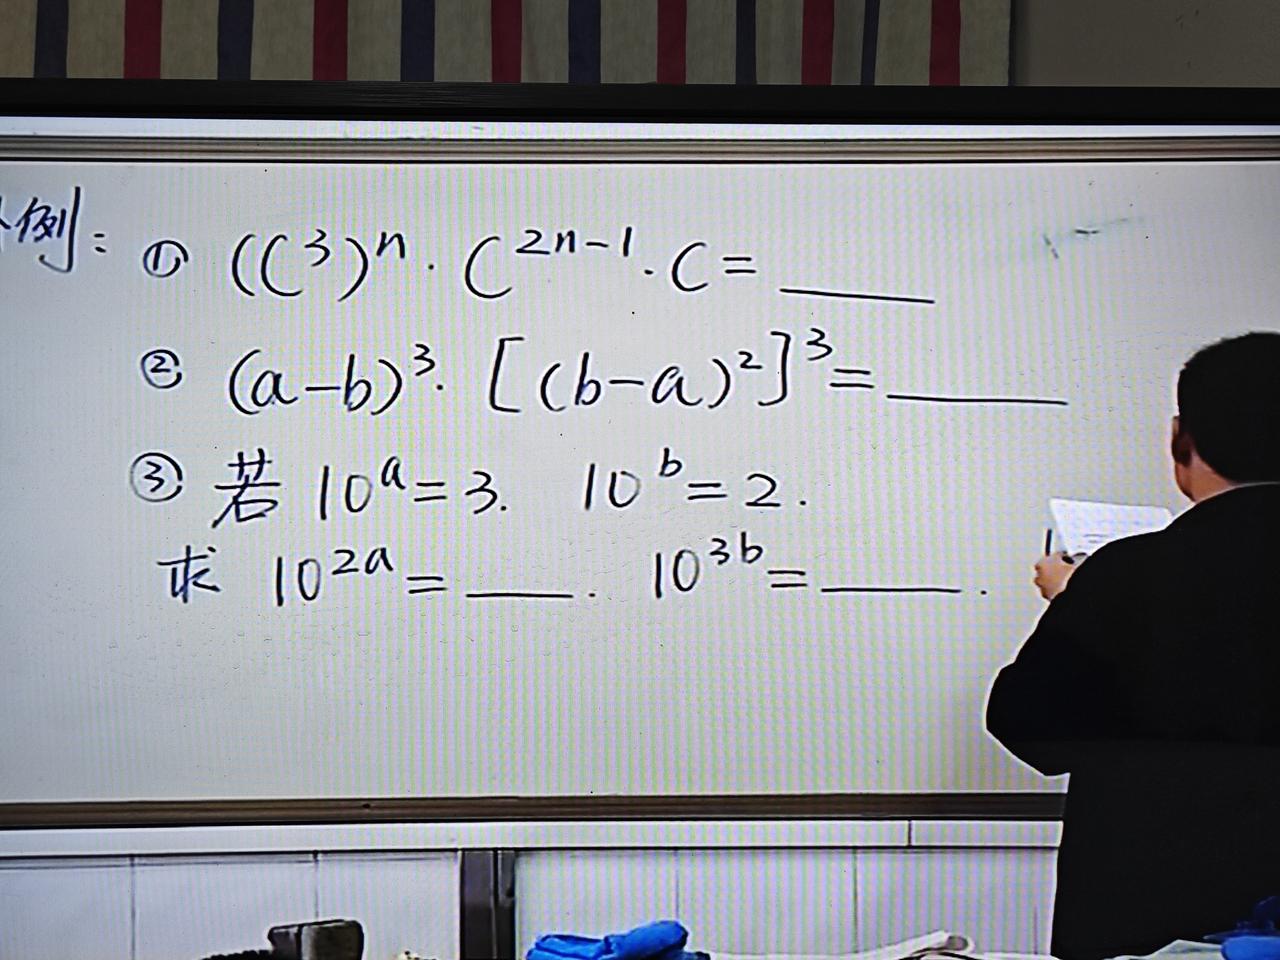 例: ① (C³)ⁿ · C²ⁿ⁻¹ · C = ____
② (a-b)³ · [(b-a)²]³ = ____
③ 若 10ᵃ = 3. 10ᵇ = 2.
求 10²ᵃ = ____. 10³ᵇ = ____.